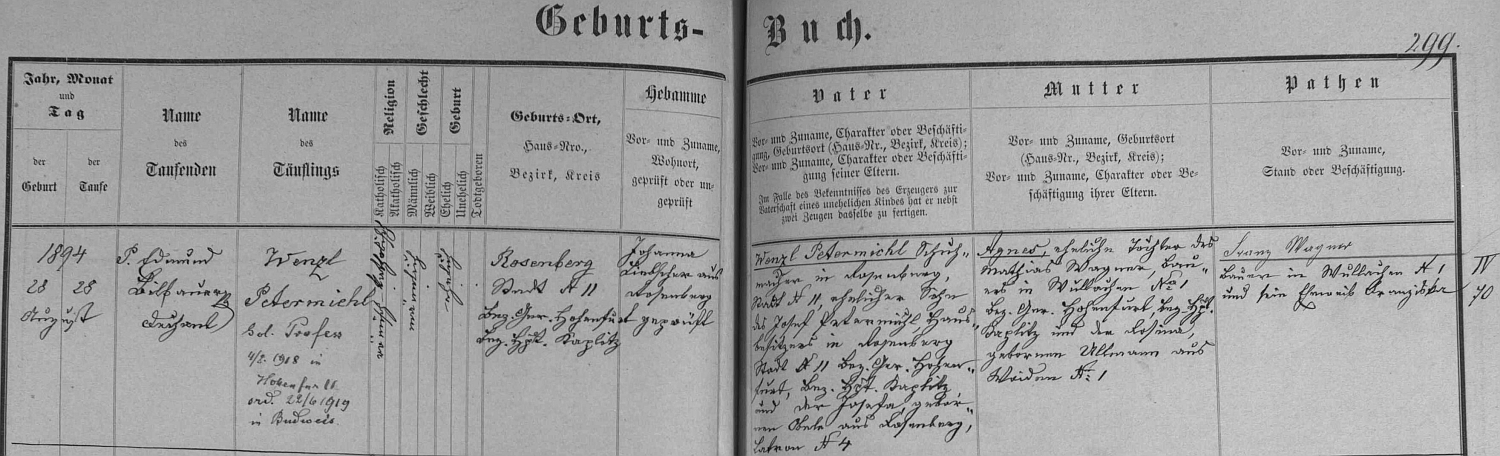 Geburts-
Buch.
299.
Jahr, Monat
und
Tag
der
Geburt
der
Taufe
Name
des
Taufenden
Name
des
Täuflings
Religion
Katholisch
Akatholisch
Geschlecht
Männlich
Weiblich
Geburt
Ehelich
Unehelich
Todtgeboren
Geburts-Ort,
Haus-Nro.,
Bezirk, Kreis
Hebamme
Vor- und Zuname,
Wohnort,
geprüft oder un-
geprüft
Vater
Vor- und Zuname, Charakter oder Beschäfti-
gung, Geburtsort (Haus-Nr., Bezirk, Kreis);
Vor- und Zuname, Charakter oder Beschäfti-
gung seiner Eltern.
Im Falle des Bekenntnisses des Erzeugers zur
Vaterschaft eines unehelichen Kindes hat er nebst
zwei Zeugen dasselbe zu fertigen.
Mutter
Vor- und Zuname, Geburtsort
(Haus-Nr., Bezirk, Kreis);
Vor- und Zuname, Charakter oder Be-
schäftigung ihrer Eltern.
Pathen
Vor- und Zuname,
Stand oder Beschäftigung.
1894
28 28
August
P. Edmund
Bilbauer
Dechant
Wenzl
Petermichl
Sol. Profess
4/8. 1918 in
Hohenfurt
ord. 22/6 1919
in Budweis.
Rosenberg
Stadt N 11
Bez. Ger. Hohenfurt
Bez. Hpt. Kaplitz
Johanna
aus
Rosenberg
geprüft
Wenzl Petermichl Schuh-
macher in Rosenberg,
Stadt N 11, ehelicher Sohn
des Josef Petermichl Haus-
besitzers in Rosenberg
Stadt N 11 Bez. Ger. Hohen-
furt, Bez. Hpt. Kaplitz
und der Josefa, gebor-
nen aus Rosenberg,
Latron N 4
Agnes, eheliche Tochter des
Mathias Wagner, Bau-
ers in Wullachen No 1
Bez. Ger. Hohenfurt, Bez. Hpt.
Kaplitz und der Rosina,
gebornen Ullmann aus
Woiden No 1
Franz Wagner
Bauer in Wullachen N 1
und sein Eheweib Franziska
IV
70